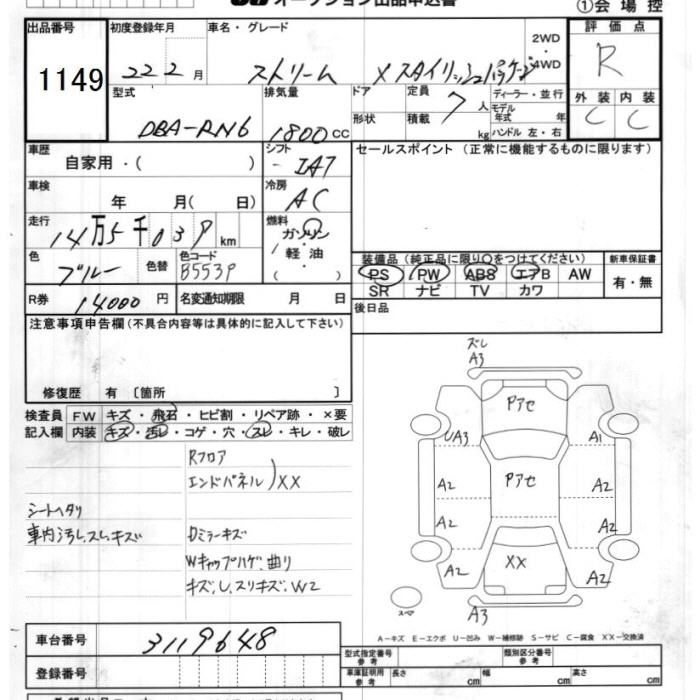 オークション出品申込書
①会場控
出品番号 初度登録年月 車名・グレード 評価点
1149 22 2月 ストリーム X スタイリッシュパッケージ 2WD 4WD R
型式 排気量 ドア 定員 ディーラー・並行 外装 内装
DBA-RN6 1800cc 7人 モデル年式 年 C C
形状 積載 kg ハンドル 左・右
車歴 シフト セールスポイント (正常に機能するものに限ります)
自家用・( ) IAT
車検 冷房
年 月( 日) AC
走行 燃料
14万5千039km ガソリン・軽油
色 色替 色コード ( ) 装備品(純正品に限り○をつけてください) 新車保証書
ブルー B553P PS PW ABS エアB AW 有・無
SR ナビ TV カワ
R券 14000円 名変通知期限 月 日 後日品
注意事項申告欄(不具合内容等は具体的に記入して下さい)
修復歴 有 〔箇所 〕
検査員 FW キズ・飛石・ヒビ割・リペア跡・×要
記入欄 内装 キズ・汚し・コゲ・穴・スレ・キレ・破レ
Rフロア
エンドパネル)XX
シートヘタリ
車内汚し、スレ、キズ
Dミラーキズ
Wキャップハゲ、曲り
キズ、し、スリキズ、W2
ズレ
A3
Pアセ
UA3 A1
Pアセ
A2 A2
A2 A2
XX
A2 A2
スペア
A3
A-キズ E-エクボ U-凹み W-補修跡 S-サビ C-腐食 XX-交換済
車台番号 3119648
型式指定番号 参考 類別区分番号 参考
登録番号 車庫証明用 参考 長さ cm 幅 cm 高さ cm